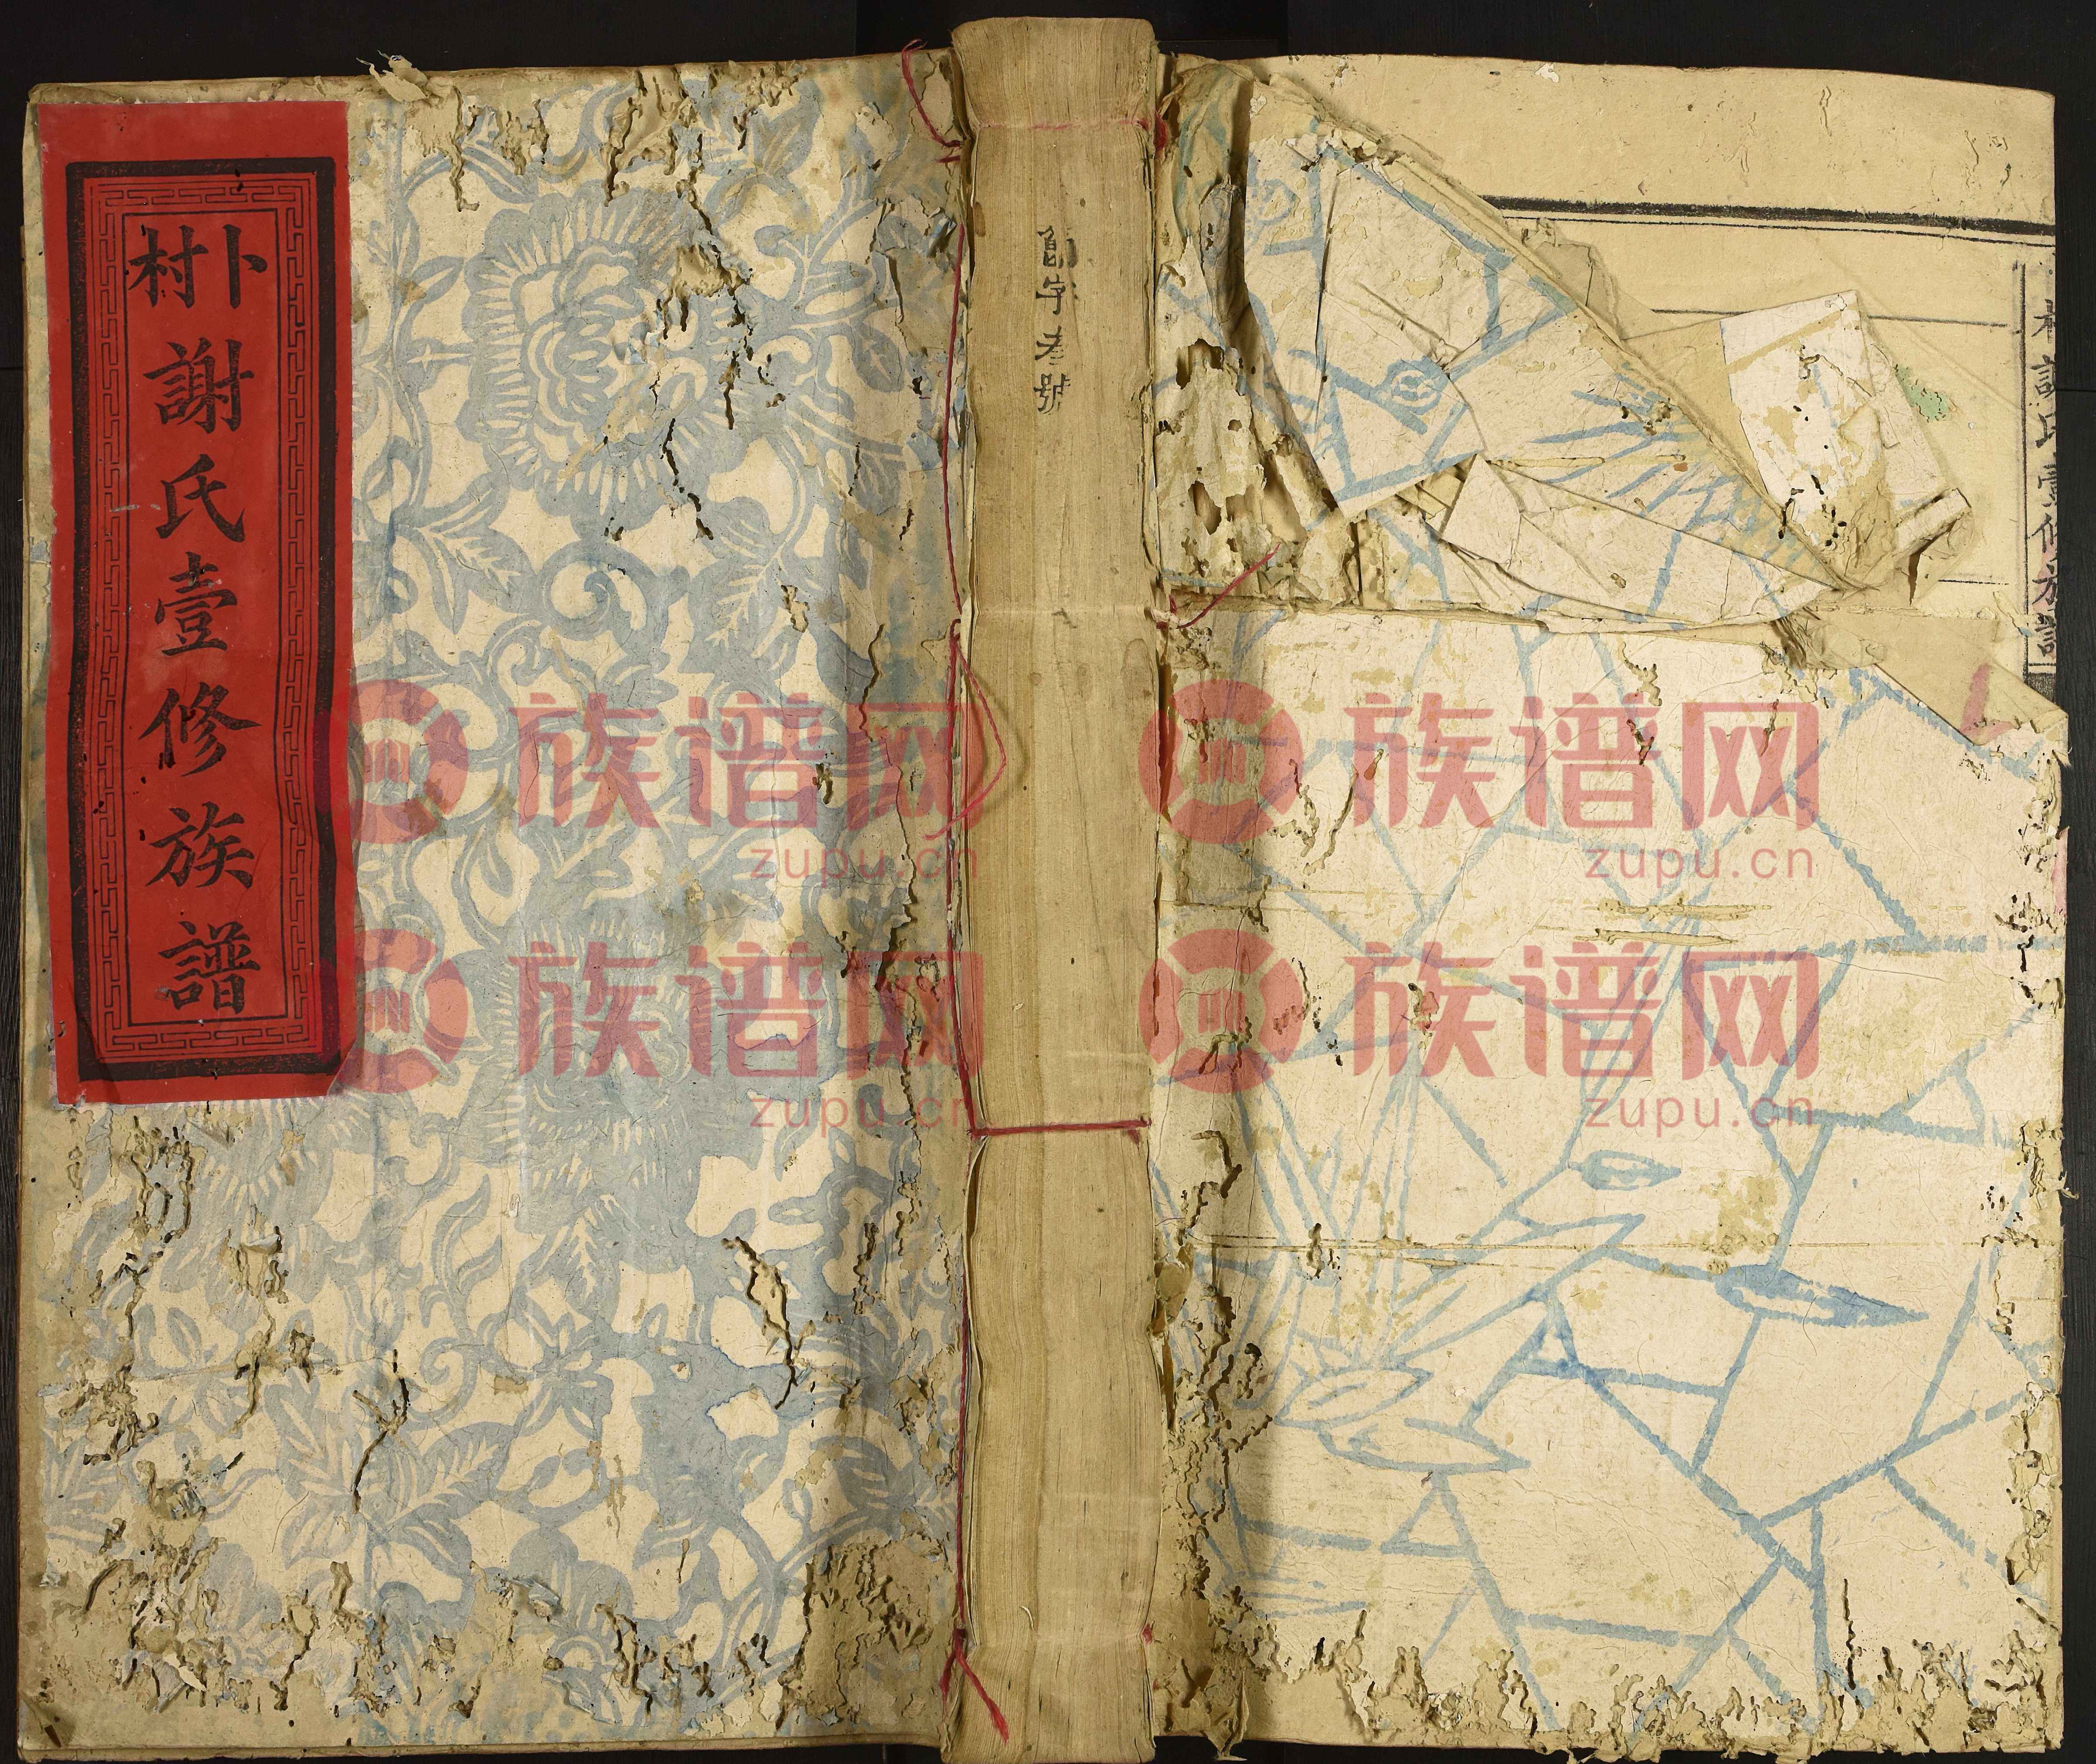 卜村
謝氏壹修族譜
字
號
謝氏
族譜
族谱网
zupu.cn
族谱网
zupu.cn
族谱网
zupu.cn
族谱网
zupu.cn